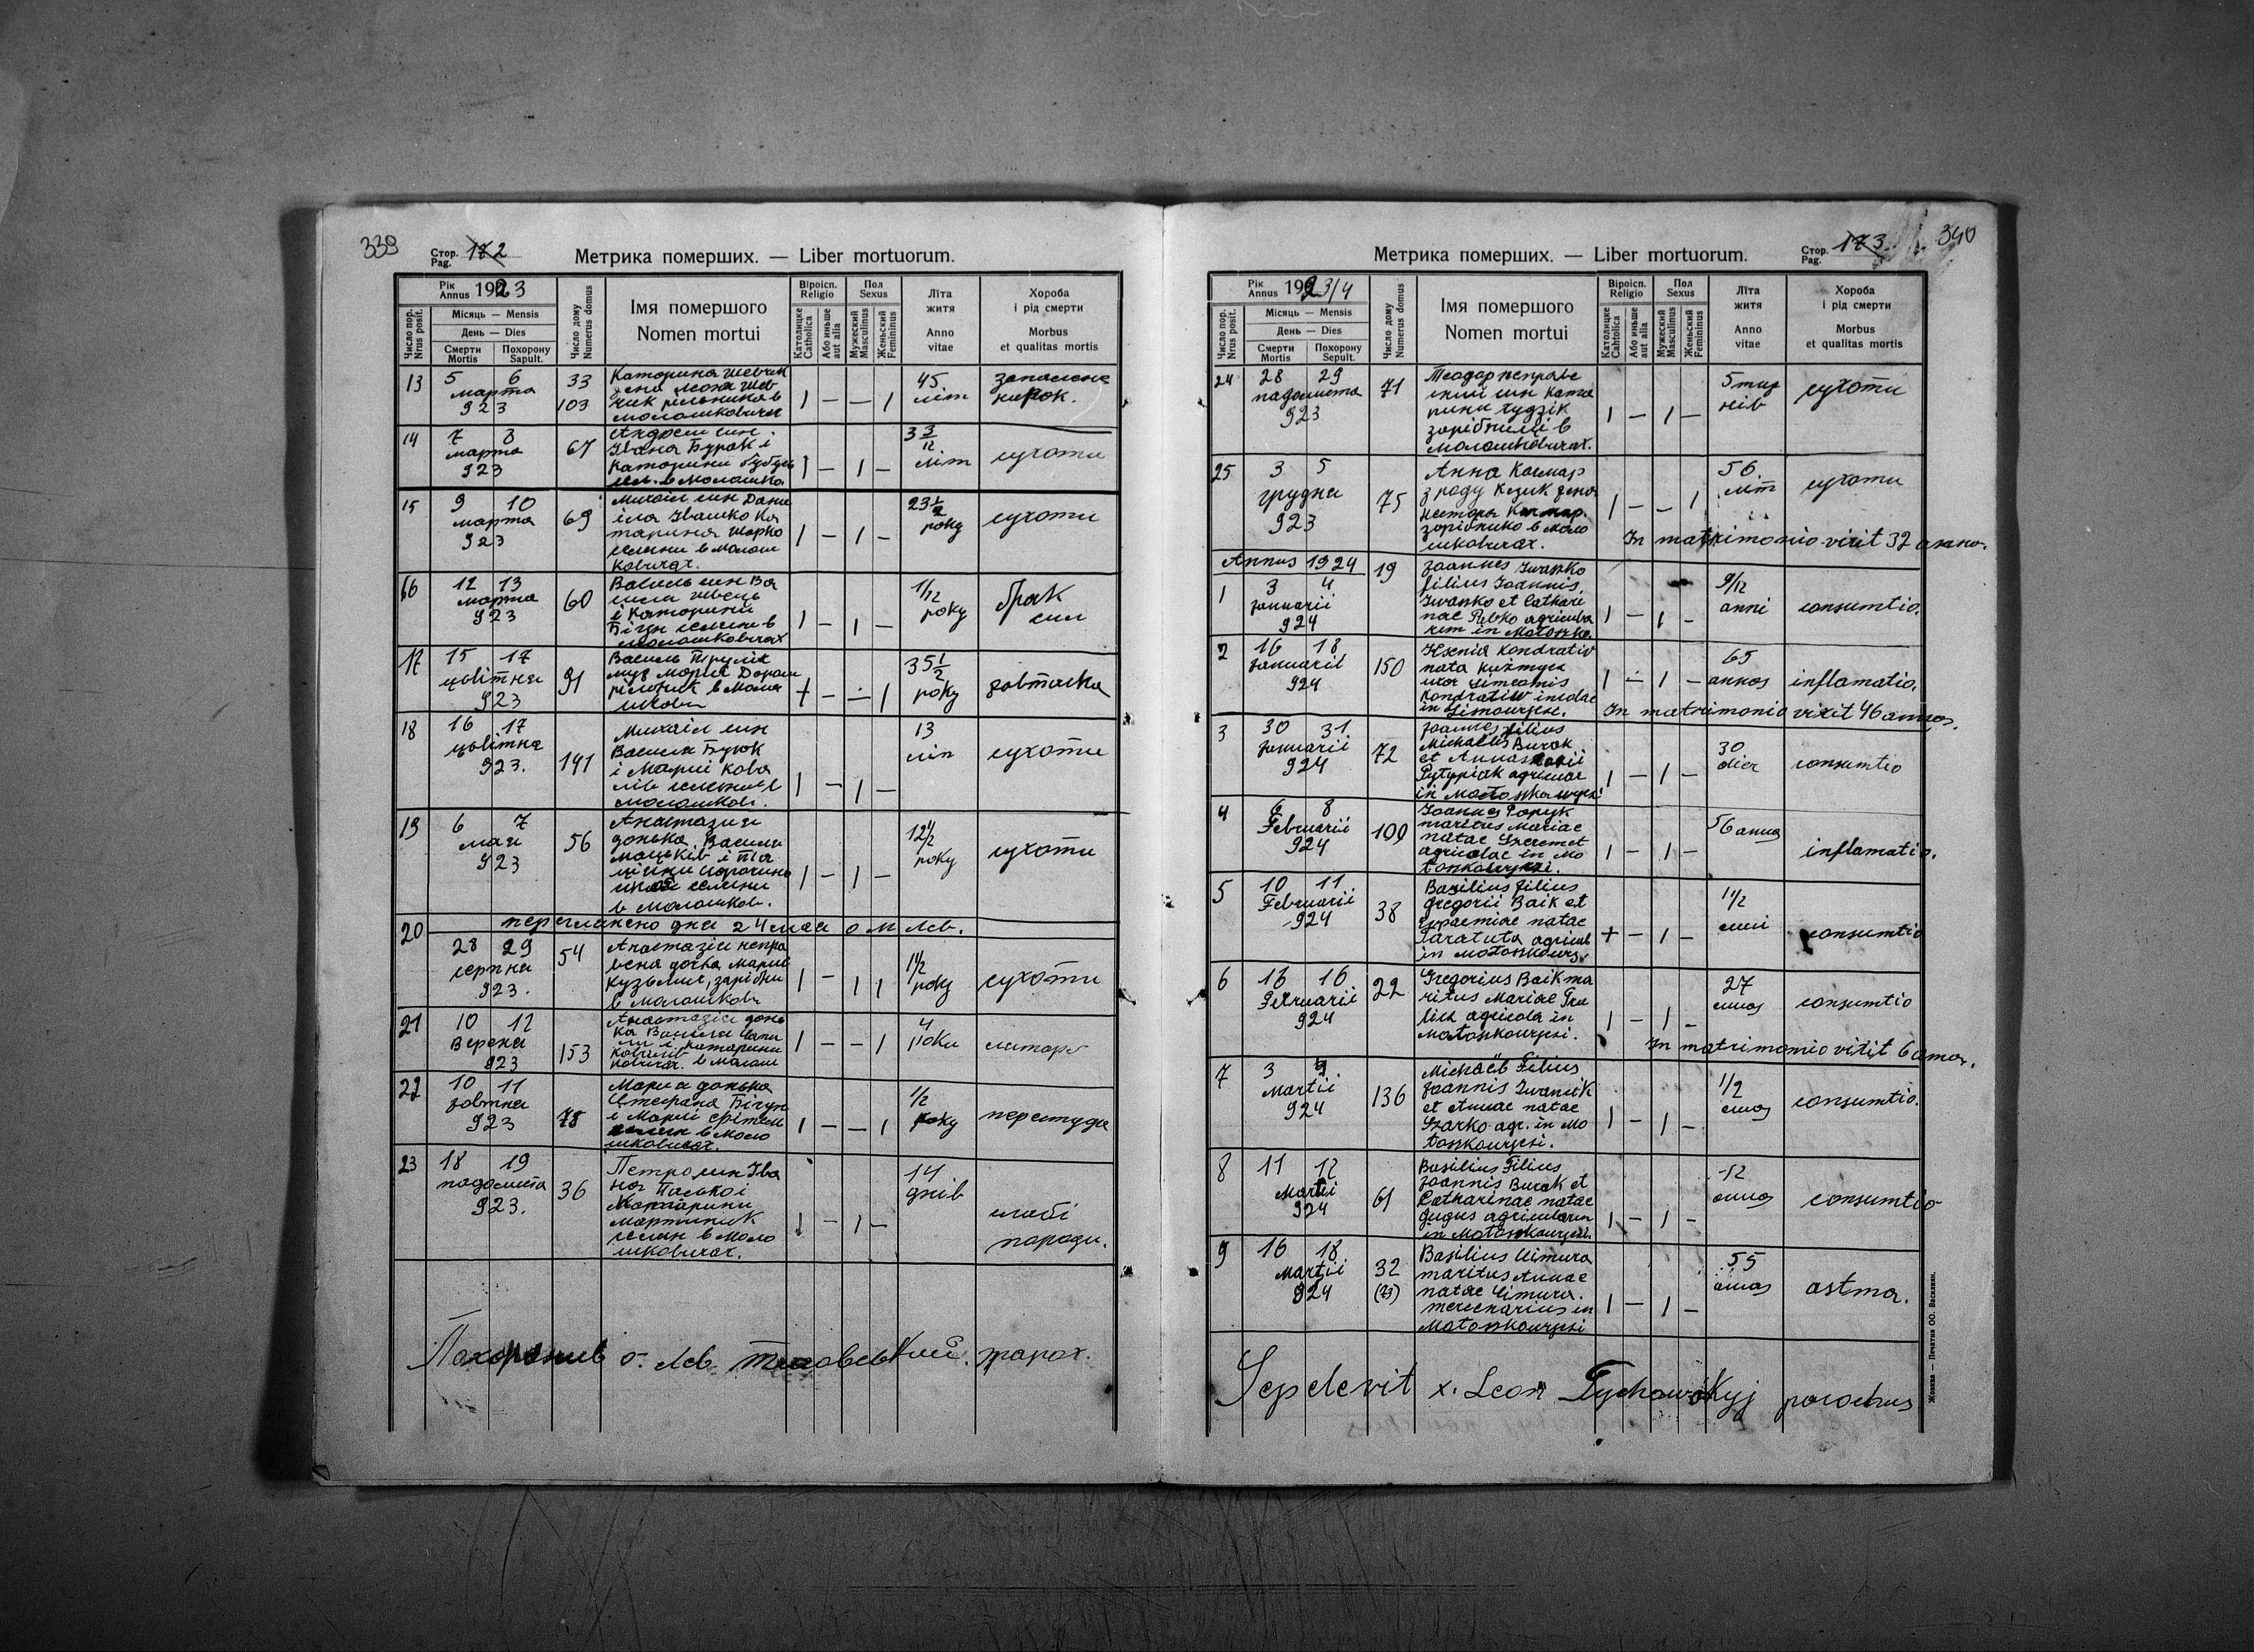 339
Стор. Pag. 172
Метрика померших. — Liber mortuorum.
Рік Annus 1923
Число пор. Nrus posit.
Місяць — Mensis
День — Dies
Смерти Mortis
Похорону Sapult.
Число дому Numerus domus
Імя помершого
Nomen mortui
Віроісп. Religio
Католицке Cahtolica
Або иньше aut alia
Пол Sexus
Мужеский Masculinus
Женьский Femininus
Лїта житя
Anno vitae
Хороба і рід смерти
Morbus et qualitas mortis
13
5 6
марта
923
33
103
Катерина Шевчик
жена Шев
чик рільників в
Молошковичах
45
літ
запалення
нирок.
14
7 8
марта
923
67
Андрей син
Івана Бурак і
Катерини
сел. в Молошко
3 3/12
літ
сухоти
15
9 10
марта
923
69
Михаіл син Дани
іла Івашко Ка
тарина Шарко
селяни в Молош
ковичах.
23 1/2
року
сухоти
16
12 13
марта
923
60
Василь син Ва
силя Швець
і Катерини
Бігун селяни в
Молошковичах
1/12
року
брак
сил
17
15 17
цвітня
923
91
Василь Труліх
муж Мариї
рільник в Моло
шкови
35 1/2
року
жовтачка
18
16 17
цвітня
923.
141
Михаіл син
Василя Бурак
і Мариї Кова
лів селяни в
Молошков.
13
літ
сухоти
19
6 7
мая
923
56
Анастазия
донька Василя
Мацьків і
селяни
в Молошков.
12 1/2
року
сухоти
20
переглянено дня 24 мая о М Лев.
28 29
серпня
923.
54
Анастазія непра
вена дочка Мариї
Кузьмич, зарібни
в Молошкови
1 1/2
року
сухоти
21
10 12
Версня
923
153
Анастазія донь
ка Василя
і Катарини
Ковалів
ковичах. в Молош
4
роки
22
10 11
жовтня
923
78
Мария донька
Штефана Бігун
і Мариї
селян в Моло
шковичах.
1/2
року
перестуда
23
18 19
падолиста
923.
36
Петро син Іва
на Пасько і
Катарини
Мартинюк
селян в Моло
шковичах.
14
днів
слабі
породи.
Похоронив о. Лев Тиховський. парох.
340
Стор. Pag. 173
Метрика померших. — Liber mortuorum.
Рік Annus 1923/4
Число пор. Nrus posit.
Місяць — Mensis
День — Dies
Смерти Mortis
Похорону Sepult.
Число дому Numerus domus
Імя помершого
Nomen mortui
Віроісп. Religio
Католицке Cahtolica
Або иньше aut alia
Пол Sexus
Мужеский Masculinus
Женьский Femininus
Лїта житя
Anno vitae
Хороба і рід смерти
Morbus et qualitas mortis
24
28 29
падолиста
923
71
Теодор неправе
ний син Ката
рини Чудзік
зарібниці в
Молошковичах.
5 тиж
нів
сухоти
25
3 5
грудня
923
75
Анна Качмар
з роду жена
Нестора Качмар.
зарібнико в Моло
шковичах.
56
літ
сухоти
In matrimonio vixit 32 anno.
Annus 1924
1
3 4
Januarii
924
19
Joannes Iwanko
filius Joannis,
Iwanko et Cathari
nae Rybko agricola
rum in Mołoszko.
9/12
anni
consumtio.
2
16 18
Januarii
924
150
Xenia Kondratiw
nata Kuźmycz
uxor Simeonis
Kondratiw incolae
in Simowycze.
65
annos
inflamatio.
In matrimonio vixit 46 annos.
3
30 31.
Januarii
924
72
Joannes filius
Michaelis Burak
et Annastasii
Pytypiak agricolae
in Mołoszkowycze
30
dier
consumtio
4
6 8
Februarii
924
100
Joannes Popyk
maritus Mariae
natae Szeremet
agricolae in Mo
łoszkowyczi.
56 annos
inflamatio.
5
10 11
Februarii
924
38
Basilius filius
Gregorii Baik et
natae
Taratuta agricol
in Mołoszkowy.
1 1/2
anni
consumtio
6
16
Februarii
924
22
Gregorius Baik ma
ritus Mariae Tru
lich agricola in
Mołoszkowyczi.
27
annos
consumtio
In matrimonio vixit 6 annos.
7
3
Martii
924
136
Michaël Filius
Joannis Iwancik
et Annae natae
Szarko agr. in Mo
łoszkowyczi.
1/2
annos
consumtio.
8
11 12
Martii
924
61
Basilius Filius
Joannis Burak et
Catharinae natae
Gugus agricolarum
in Mołoszkowyczi.
12
annos
consumtio
9
16 18
Martii
924
32
(73)
Basilius Cimura
maritus Annae
natae Cimura.
mercenarius in
Mołoszkowyczi
55
annos
astma.
Sepelevit x. Leon Tychowśkyj parochus
Жовква — Печатня ОО. Василиян.